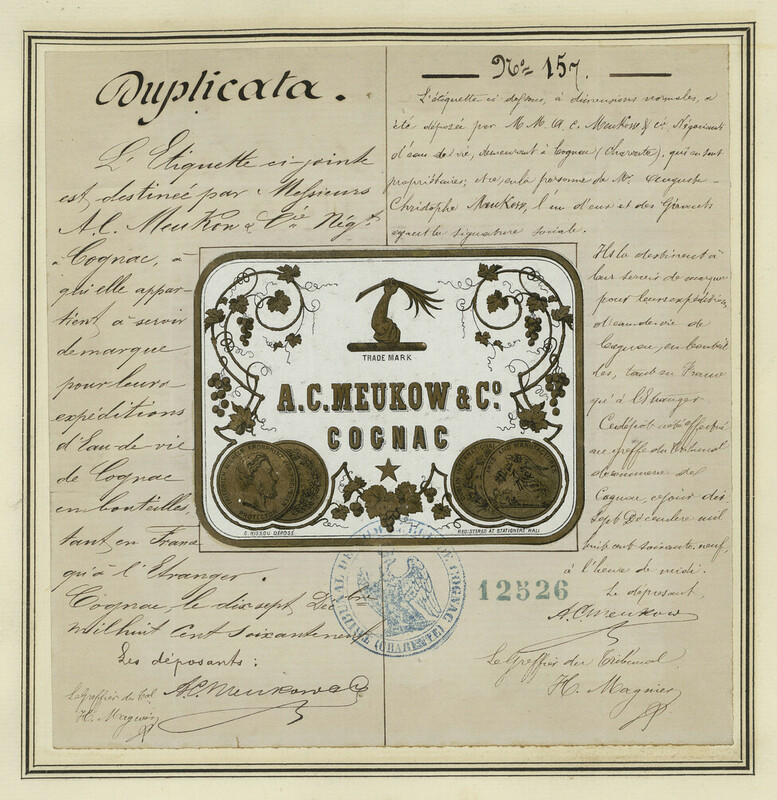 Duplicata.
L'Etiquette ci-jointe
est destinée par Messieurs
A.C. Meukow & Cie Négts
à Cognac, à
qui elle appar-
tient à servir
de marque
pour leurs
expéditions
d'Eau-de-vie
de Cognac
en bouteilles,
tant en France
qu'à l'Etranger.
Cognac, le dix sept Décbre
mil huit cent soixante neuf
Les déposants:
A.C. Meukow & Co
Le Greffier du Tal
H. Magnier
No 157.
L'étiquette ci dessous, à dimensions normales, a
été déposée par MM. A. C. Meukow & Cie, Négociants
d'eau de vie, demeurant à Cognac (Charente), qui en sont
propriétaires; et ce, en la personne de Mr. Auguste-
Christophe Meukow, l'un d'eux et des Gérants
ayant la signature sociale.
Ils la destinent à
leur servir de marque
pour leurs expéditions
d'eau-de-vie de
Cognac, en bouteil
les, tant en France
qu'à l'Etranger
Ce dépôt a été effectué
au greffe du Tribunal
de commerce de
Cognac, ce jour dix
sept Décembre mil
huit cent soixante neuf,
à l'heure de midi.
Le déposant,
A.C. Meukow
Le Greffier du Tribunal
H. Magnier
TRADE MARK
A.C. MEUKOW & Co.
COGNAC
G. RISSOU DÉPOSÉ
REGISTERED AT STATIONERS HALL
TRIBUNAL DE COGNAC (CHARENTE)
12526